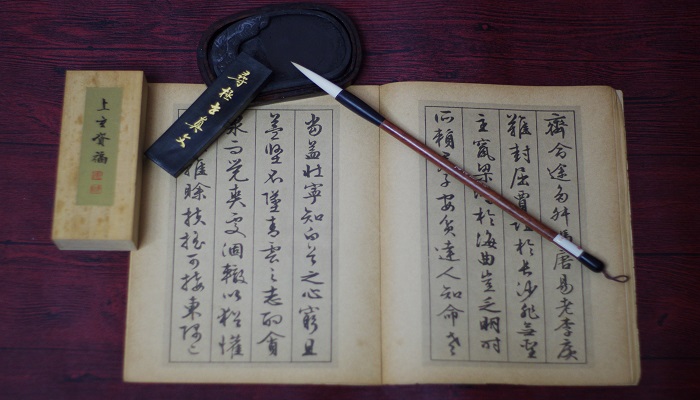 齊命途多舛唐易老李廣
難封屈賈誼於長沙非無聖
主竄梁於海曲豈乏明時
所賴子安貧達人知命老
當益壯寧知白首之心窮且
益堅不墜青雲之志酌貪
泉而覺爽處涸轍以猶懽
雖賒扶搖可接東隅已
尋極真文
上